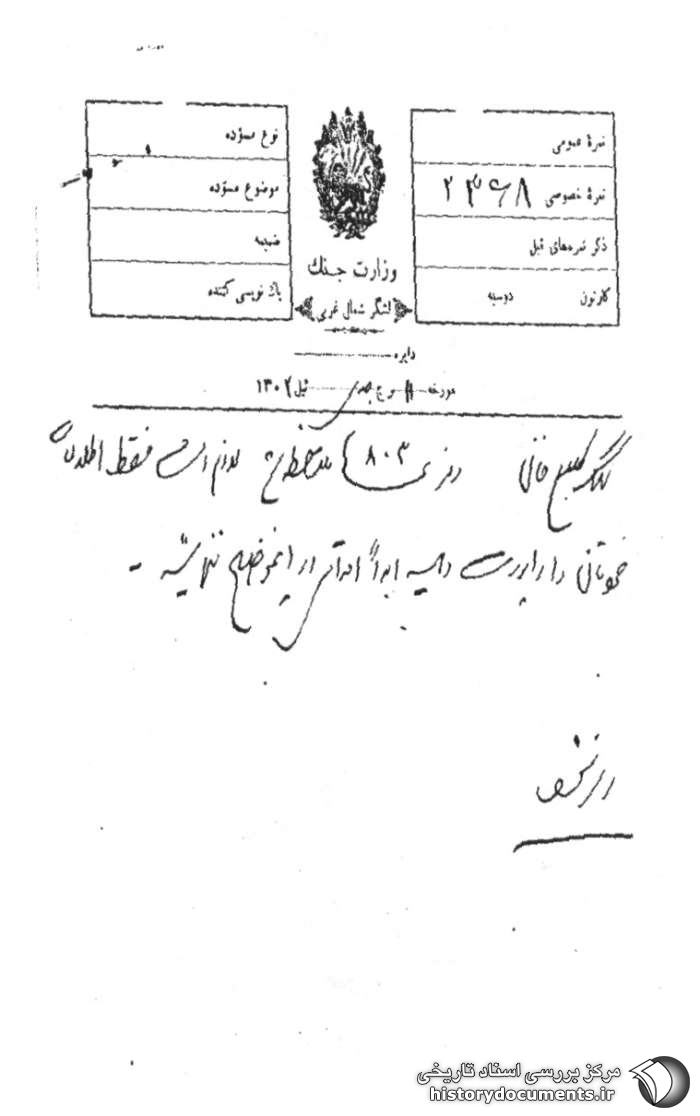 نمرهٔ عمومی
نمرهٔ خصوصی ۲۳۶۸
ذکر نمره‌های قبل
کارتون دوسیه
وزارت جنك
لشگر شمال غربی
نوع مسوّده
موضوع مسوّده
ضمیمه
پاك نویس کننده
دایره
مورخه برج جدی ئیل ۱۳۰۲
۸۰۳ ملاحظه لازم است فقط اطلاعات
خودتان را راپورت داده ابداً اقدامی در اینموضوع ننمائید -
مرکز بررسی اسناد تاریخی
historydocuments.ir